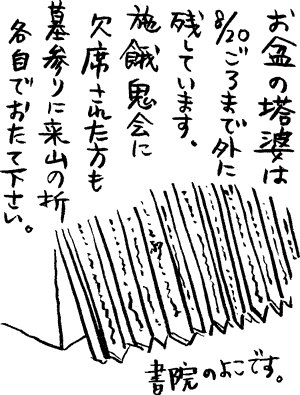 お盆の塔婆は
8/20ごろまで外に
残しています。
施餓鬼会に
欠席された方も
墓参りに来山の折
各自でおたて下さい。
書院のよこです。